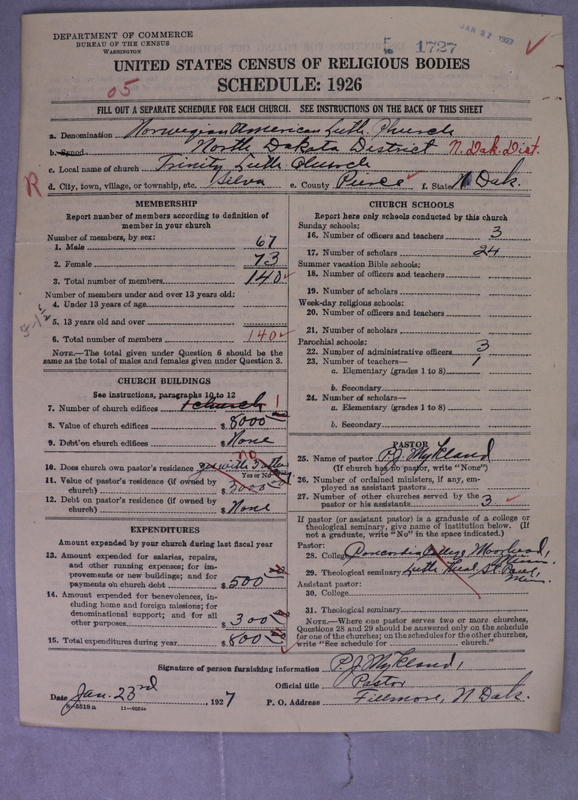 DEPARTMENT OF COMMERCE
BUREAU OF THE CENSUS
WASHINGTON
5 1727
JAN 27 1927
UNITED STATES CENSUS OF RELIGIOUS BODIES
05
SCHEDULE: 1926
FILL OUT A SEPARATE SCHEDULE FOR EACH CHURCH. SEE INSTRUCTIONS ON THE BACK OF THIS SHEET
a. Denomination Norwegian American Luth Church
b. Synod North Dakota District N. Dak. Dist.
c. Local name of church Trinity Luth Church
R
d. City, town, village, or township, etc. Selva e. County Pierce f. State N Dak.
MEMBERSHIP
Report number of members according to definition of
member in your church
Number of members, by sex:
1. Male 67
2. Female 73
3. Total number of members 140
Number of members under and over 13 years old:
4. Under 13 years of age
5. 13 years old and over
6. Total number of members 140
NOTE.—The total given under Question 6 should be the
same as the total of males and females given under Question 3.
CHURCH BUILDINGS
See instructions, paragraphs 10 to 12
7. Number of church edifices 1 church 1
8. Value of church edifices $ 8000
9. Debt on church edifices $ None
no
10. Does church own pastor's residence yes with
Yes or No
11. Value of pastor's residence (if owned by
church) $ 5000
12. Debt on pastor's residence (if owned by
church) $ None
EXPENDITURES
Amount expended by church during last fiscal year
13. Amount expended for salaries, repairs,
and other running expenses; for im-
provements or new buildings; and for
payments on church debt $ 500
14. Amount expended for benevolences, in-
cluding home and foreign missions; for
denominational support; and for all
other purposes $ 300
15. Total expenditures during year $ 800
CHURCH SCHOOLS
Report here only schools conducted by this church
Sunday schools:
16. Number of officers and teachers 3
17. Number of scholars 24
Summer vacation Bible schools:
18. Number of officers and teachers
19. Number of scholars
Week-day religious schools:
20. Number of officers and teachers
21. Number of scholars
Parochial schools:
22. Number of administrative officers 3
23. Number of teachers— 1
a. Elementary (grades 1 to 8)
b. Secondary
24. Number of scholars—
a. Elementary (grades 1 to 8)
b. Secondary
PASTOR
25. Name of pastor P.J. Mykland
(If church has no pastor, write "None")
26. Number of ordained ministers, if any, em-
ployed as assistant pastors
27. Number of other churches served by the
pastor or his assistants 3
If pastor (or assistant pastor) is a graduate of a college or
theological seminary, give name of institution below. (If
not a graduate, write "No" in the space indicated.)
Pastor:
28. College Concordia College Moorhead, Minn.
29. Theological seminary Luth. St. Paul, Minn.
Assistant pastor:
30. College
31. Theological seminary
NOTE.—Where one pastor serves two or more churches,
Questions 28 and 29 should be answered only on the schedule
for one of the churches; on the schedules for the other churches,
write "See schedule for church."
Signature of person furnishing information P.J. Mykland,
Official title Pastor
Date Jan. 23rd, 1927 P. O. Address Fillmore, N Dak.